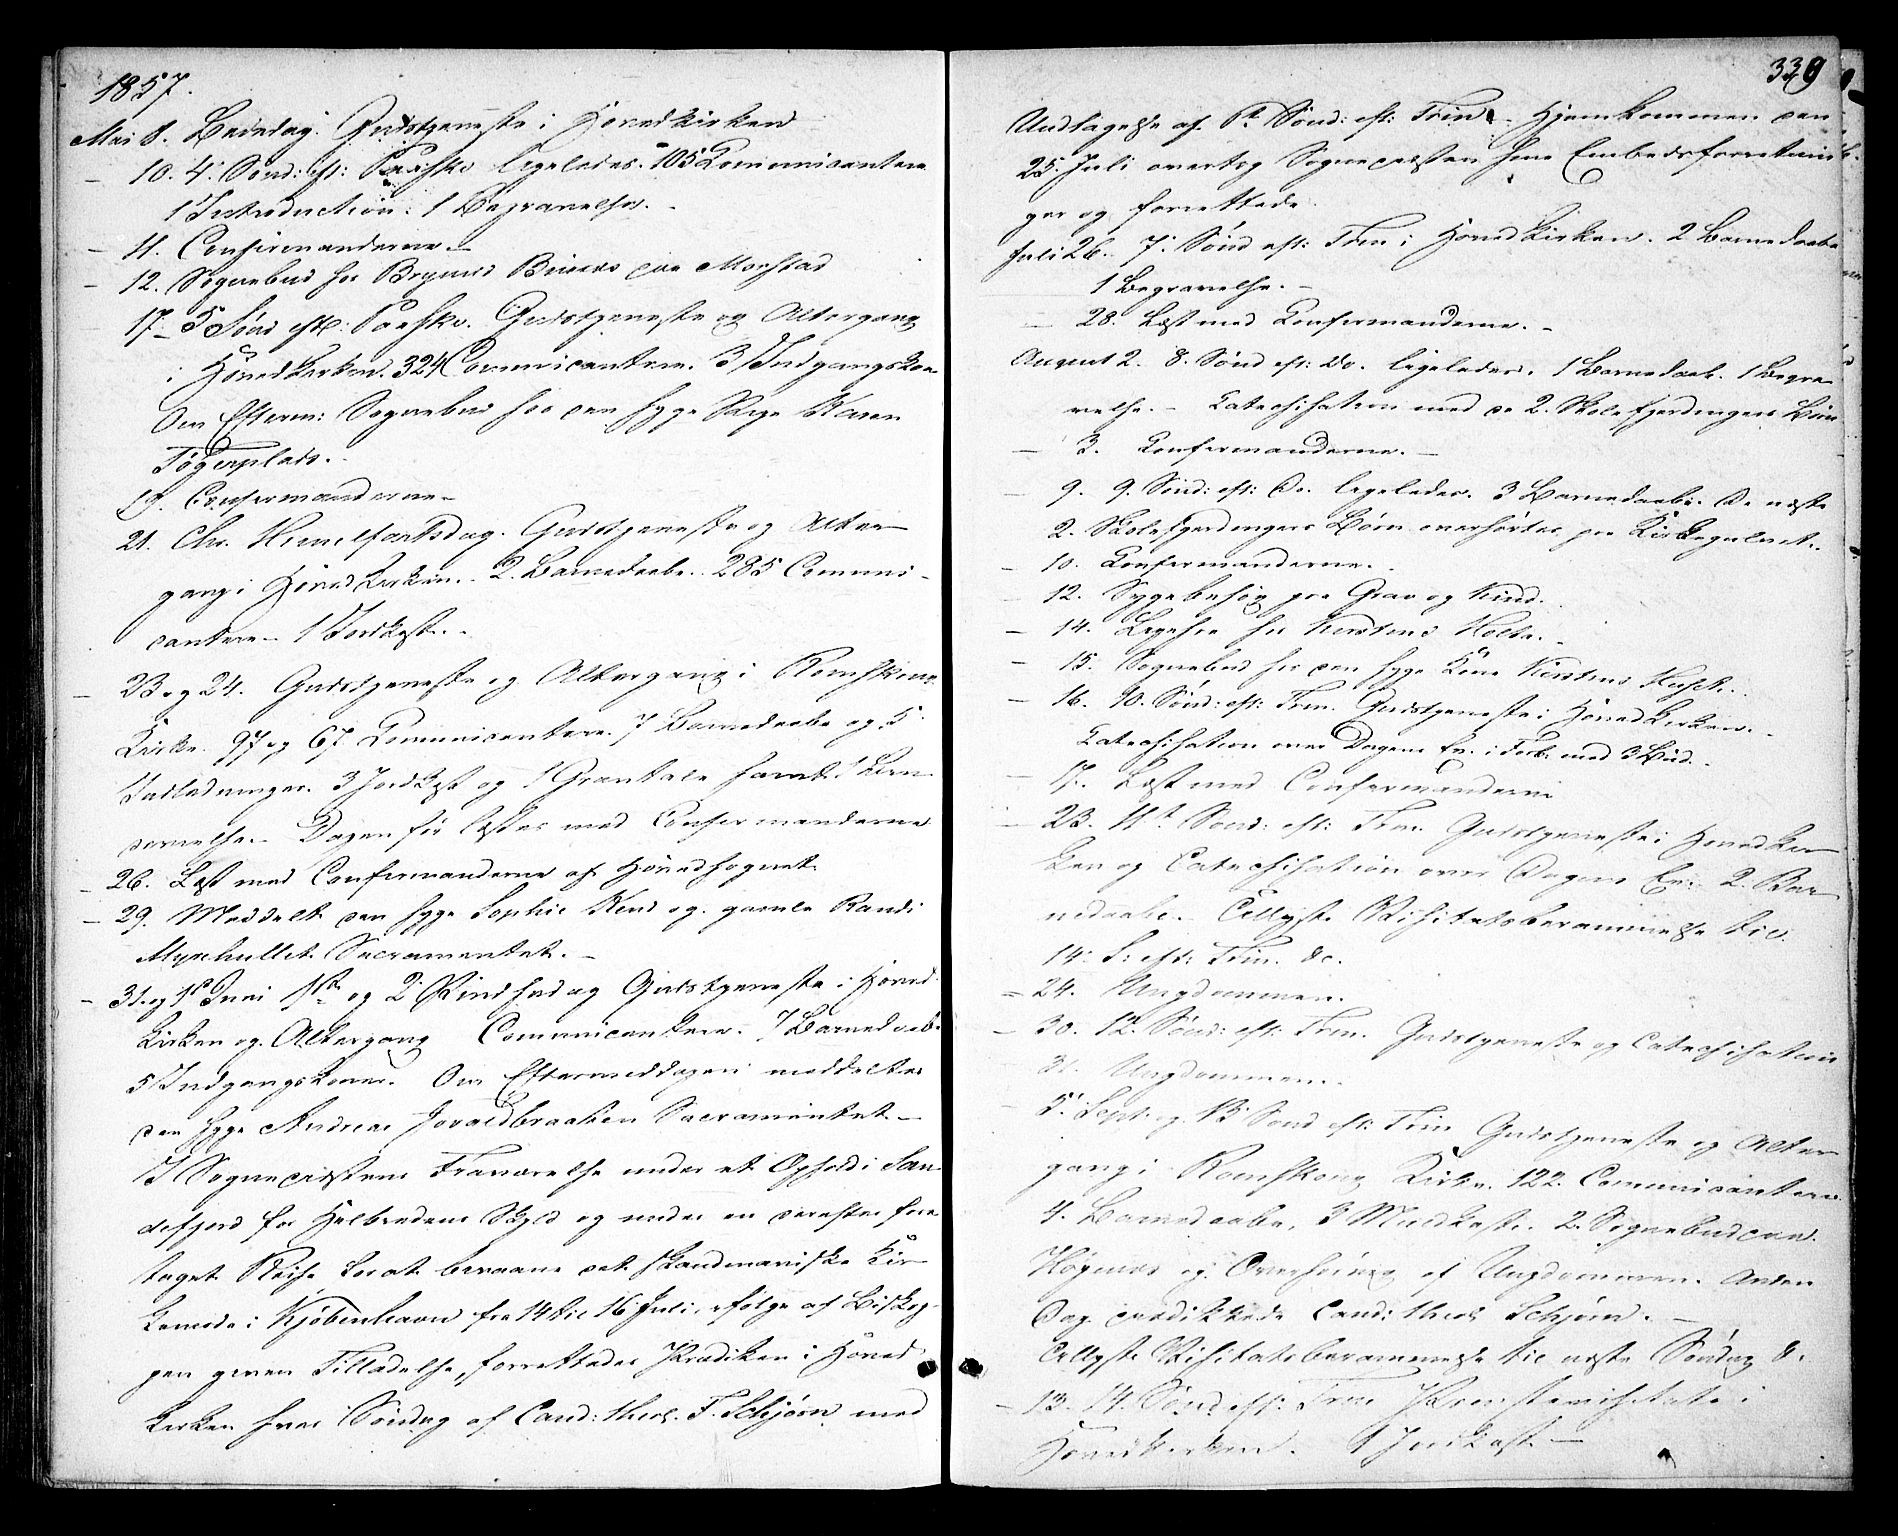 1857.
Mai 8. Bededag. Gudstjeneste i Hovedkirken
— 10. 4. Sønd: eft: Paaske ligeledes. 105 Communicantere
1 Introduction. 1 Begravelse. -
— 11. Confirmanderne. -
— 12. Sognebud hos Brynild paa Morstad
17. 5 Sønd eft: Paaske. Gudstjeneste og Altergang
i Hovedkirken. 324 Communicantere. 3 Indgangskoner
Om Efterm: Sognebud hos den syge Pige Karen
19. Confirmanderne -
21. Chr. Himmelfartsdag. Gudstjeneste og Alter-
gang i Hovedkirken. 2 Barnedaabe. 285 Communi-
cantere - 1 Jordkast. -
— 23 og 24. Gudstjeneste og Altergang i Romskoug
Kirke. 97 og 67 Communicantere. 7 Barnedaabe og 5
Indledninger. 3 Jordkast og 1 Gravtale samt 1
Dagen før læstes med Confirmanderne
— 26. Læst med Confirmanderne af Hovedsognet
— 29. Meddelt den syge Sophie og gamle Randi
Myrehullet Sacramentet. -
— 31. og 1ste Juni 1ste og 2 Pindsedag Gudstjeneste i Hoved
kirken og Altergang Communicantere. 7 Barnedaabe
5 Indgangskoner. Om Eftermiddagen meddeltes
den syge Andreas Sacramentet -
I Sognepræstens Fraværelse under et Ophold i San-
defjord for Helbredens Skyld og under en derefter fore
taget Reise for at bivaane det skandinaviske Kir-
kemøde i Kjøbenhavn fra 14 til 16 Juli, ifølge af Biskop-
pen given Tilladelse, forrettedes Prædiken i Hoved
kirken hver Søndag af Cand: theol. F. Schjørn med
339
Undtagelse af 6te Sønd: eft: Trin. - Hjemkommen den
25. Juli overtog Sognepræsten sine Embedsforretnin-
ger og forrettede
Juli 26. 7. Sønd eft: Trin i Hovedkirken. 2 Barnedaabe
1 Begravelse. -
— 28. Læst med Confirmanderne. -
August 2. 8. Sønd eft: Do. ligeledes. 1 Barnedaab. 1 Begra-
velse. - Catechisation med de 2 Skolefjerdingers Børn
— 3. Confirmanderne. -
— 9. 9. Sønd: eft: Do. ligeledes. 3 Barnedaabe. De næste
2. Skolefjerdingers Børn overhørtes paa Kirkegulvet.
— 10. Confirmanderne. -
— 12. Sygebesøg paa Grav og Kind.
— 14. Ligesaa hos Kirstine Holte. -
— 15. Sognebud hos den syge Kone Kirstine
— 16. 10. Sønd: eft: Trin. Gudstjeneste i Hovedkirken. -
Catechisation over Dagens Ev. i Forb. med 3 Bud. -
— 17. Læst med Confirmanderne
— 23. 11te Sønd: eft: Trin. Gudstjeneste i Hovedkir-
ken og Catechisation over Dagens Ev. 2. Bar-
nedaabe. Oplyste Visitatsberammelse til
14. S: eft: Trin. &c.
— 24. Ungdommen.
— 30. 12. Sønd: eft: Trin. Gudstjeneste og Catechisation
31. Ungdommen.
— 5. Sept: og 13 Sønd eft: Trin Gudstjeneste og Alter
gang i Romskoug Kirke. 122. Communicantere.
4. Barnedaabe, 3 Muldkaste. 2. Sognebud paa
og Overhøring af Ungdommen. Anden
Dag prædikede Cand: theol Schjørn. -
Oplyste Visitatsberammelse til næste Søndag d.
— 13. 14. Sønd: eft: Trin i
Hovedkirken. 1 Jordkast. —